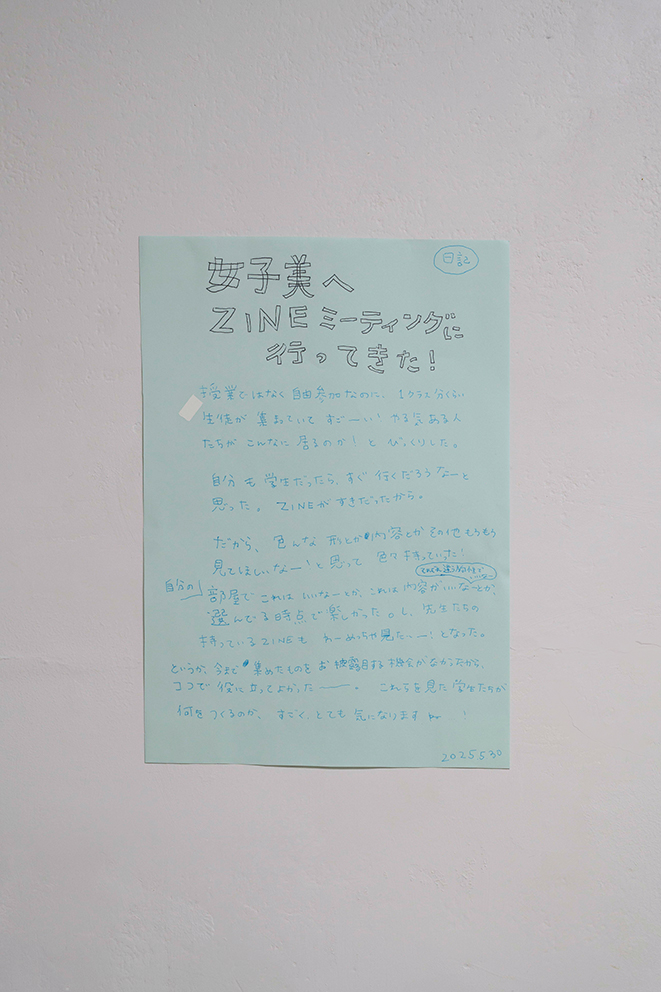 日記
女子美へ
ZINEミーティングに
行ってきた!
授業ではなく自由参加なのに、1クラス分くらい
生徒が集まっていてすごーい!やる気ある人
たちがこんなに居るのか!とびっくりした。
自分も学生だったら、すぐ行くだろうなーと
思った。ZINEがすきだったから。
だから、色んな形とか内容とかその他もうもう
見てほしいなー!と思って色々持っていった!
それぞれ違う物体で
自分の
部屋でこれはいいなーとか、これは内容がいいなーとか、
選んでる時点で楽しかった。し、先生たちの
持っているZINEもわーめっちゃ見たーー!となった。
というか、今まで集めたものをお披露目する機会がなかったから、
ココで役に立ってよかったー。これらを見た学生たちが
何をつくるのか、すごく、とても気になります!
2025530